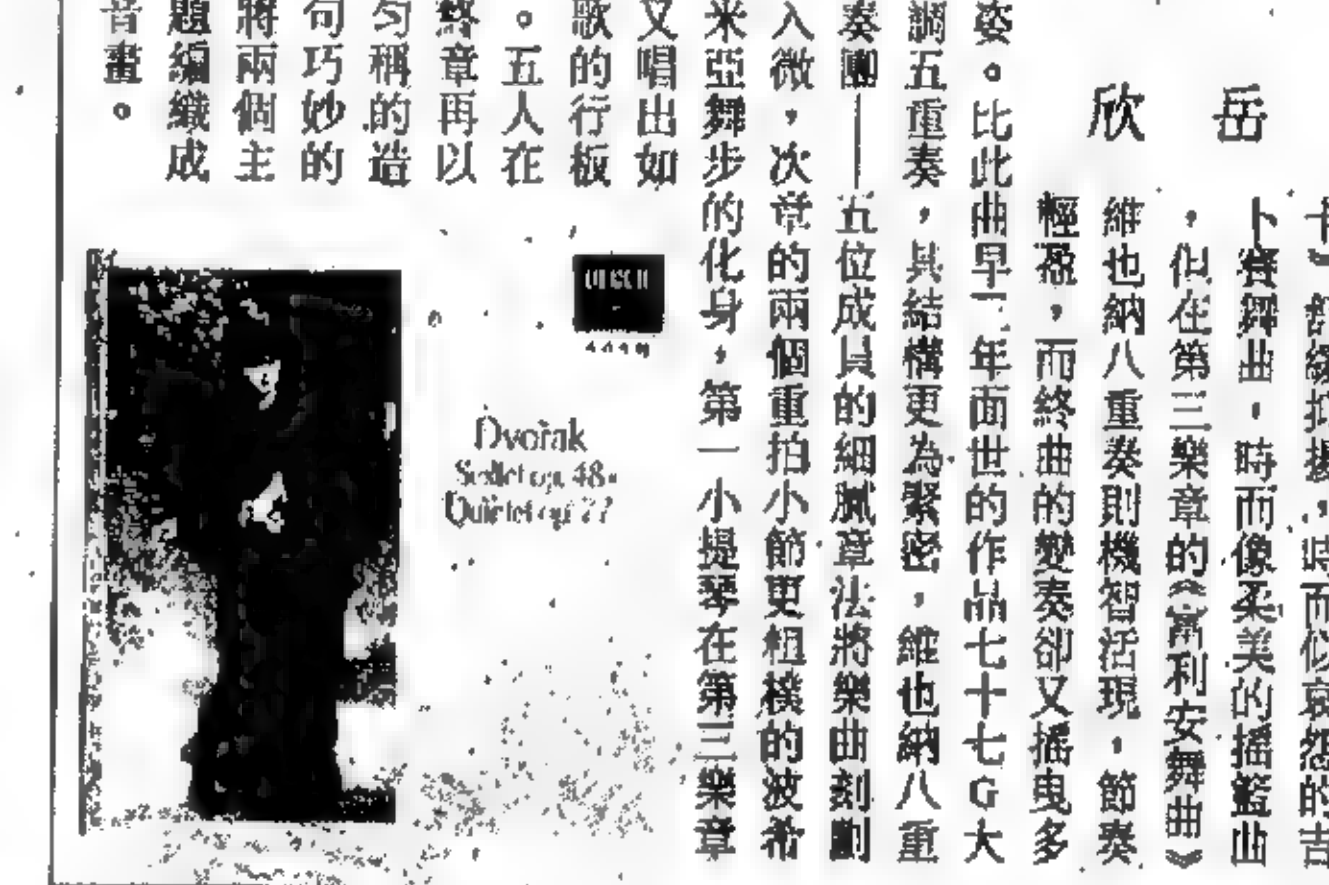 岳欣
卜賽舞曲，時而像柔美的搖籃曲
，但在第三樂章的《富利安舞曲》
維也納八重奏則機智活現，節奏
輕盈，而終曲的變奏卻又搖曳多
姿。比此曲早二年面世的作品七十七G大
調五重奏，其結構更為緊密，維也納八重
奏團——五位成員的細膩章法將樂曲刻劃
入微，次章的兩個重拍小節更粗樸的波希
米亞舞步的化身，第一小提琴在第三樂章
又唱出如
歌的行板
。五人在
終章再以
勻稱的造
句巧妙的
將兩個主
題編織成
音畫。
Dvořak
Sextet op. 48
Quintet op. 77